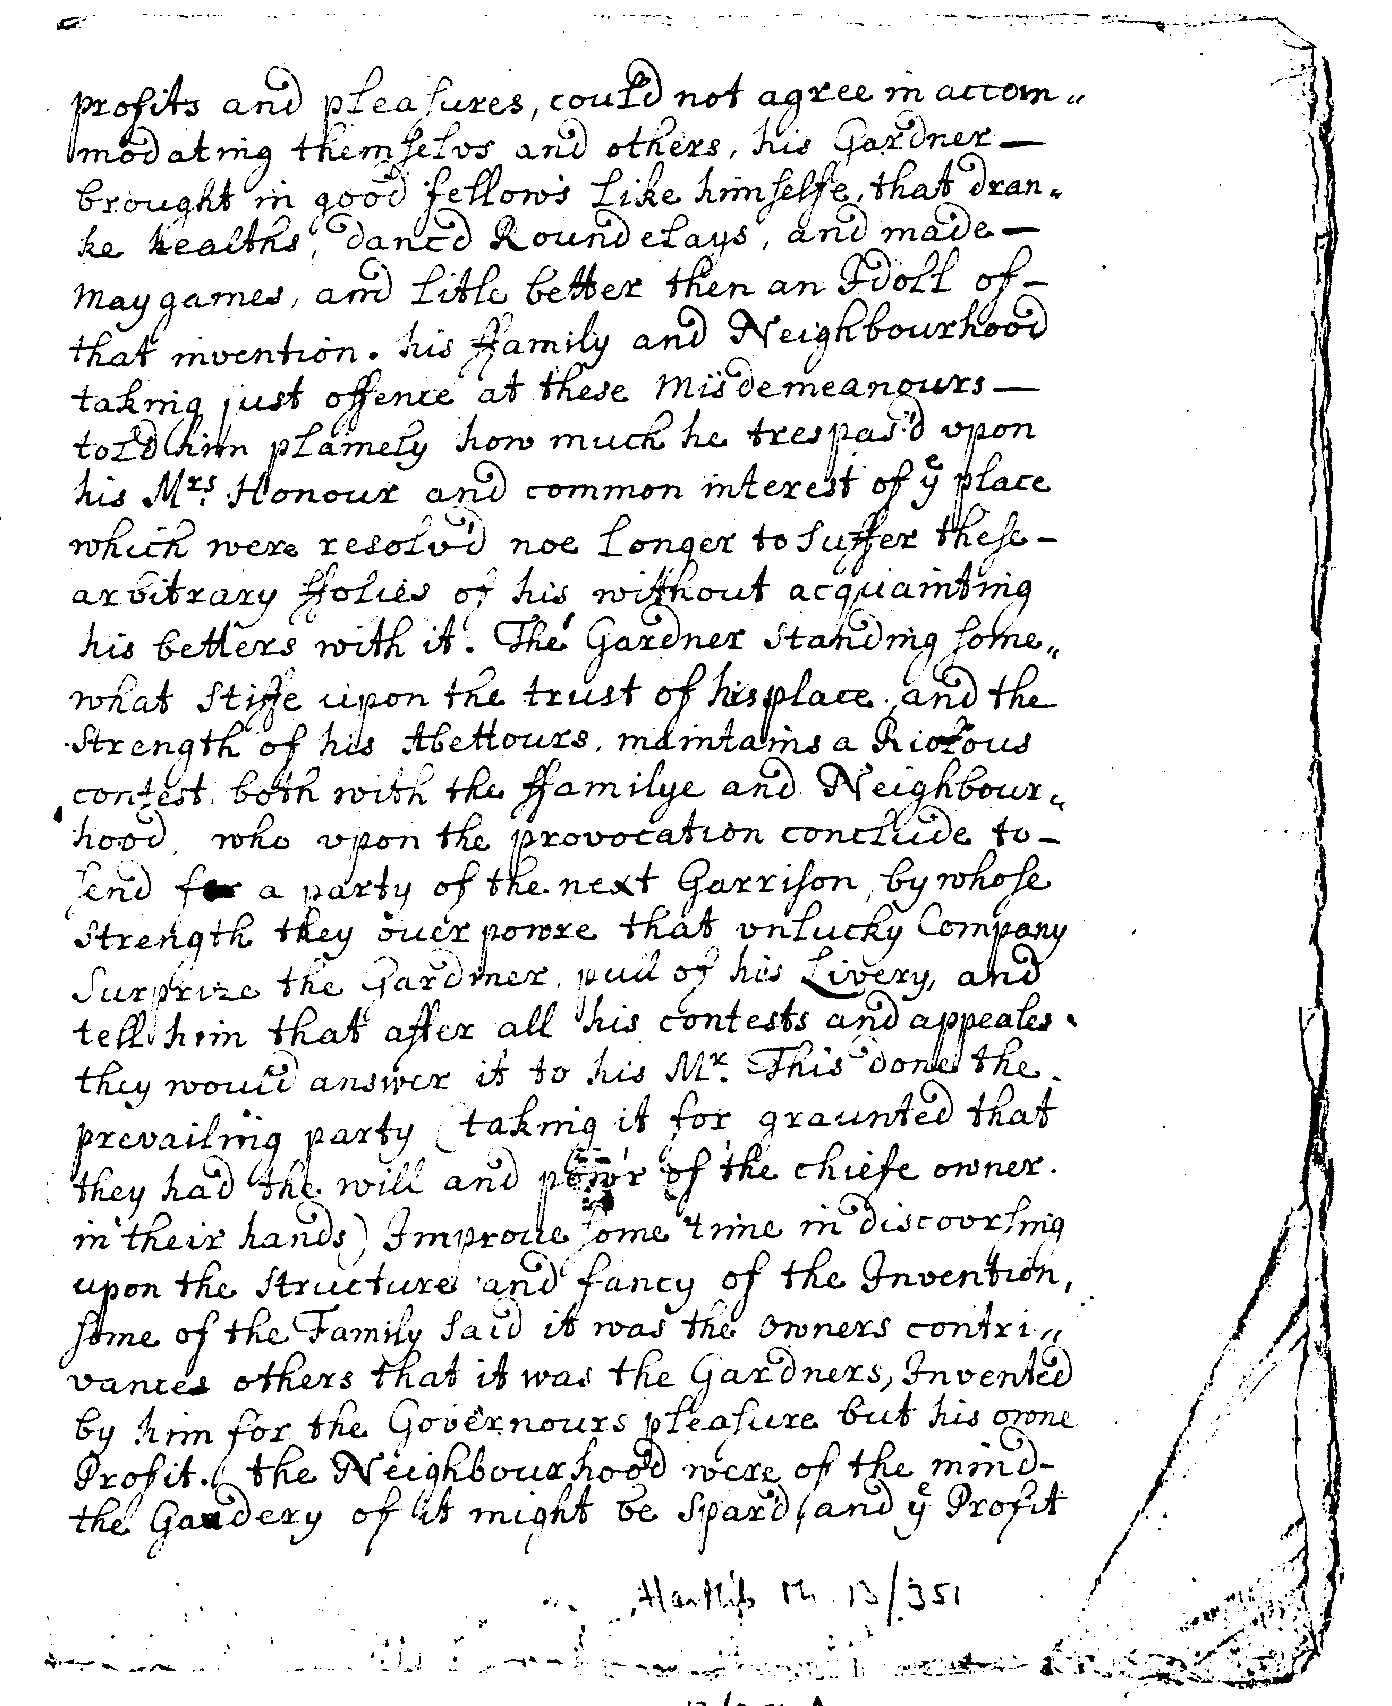 profits and pleasures, could not agree in accom„
modating themselvs and others, his Gardner —
brought in good fellows like himselfe, that dran„
ke healths, danc'd Roundelays, and made —
may games, and litle better then an Idoll of –
that invention. his ffamily and Neighbourhood
taking just offence at these Misdemeanours —
told him plainely how much he trespas'd vpon
his Mrs. Honour and common interest of ye place
which were resolv'd noe longer to suffer these –
arbitrary ffolies of his without acquainting
his betters with it. The Gardner standing some„
what stiffe upon the trust of his place, and the
strength of his Abettours, maintains a Riotous
contest both with the ffamilye and Neighbour„
hood, who vpon the provocation conclude to –
send for a party of the next Garrison, by whose
strength they ouer powre that vnlucky Company
Surprize the Gardiner, pull of his Livery, and
tell him that after all his contests and appeales
they would answer it to his Mr. This done the
prevailing party (taking it for graunted that
they had the will and powr of the chiefe owner
in their hands) Improue some time in discovrsing
upon the structure and fancy of the Invention,
some of the Family said it was the owners contri„
vances others that it was the Gardners, Invented
by him for the Governours pleasure but his owne
Profit. the Neighbourhood were of the mind –
the Gaudery of it might be spar'd, and ye Profit
Hartlib 13/351